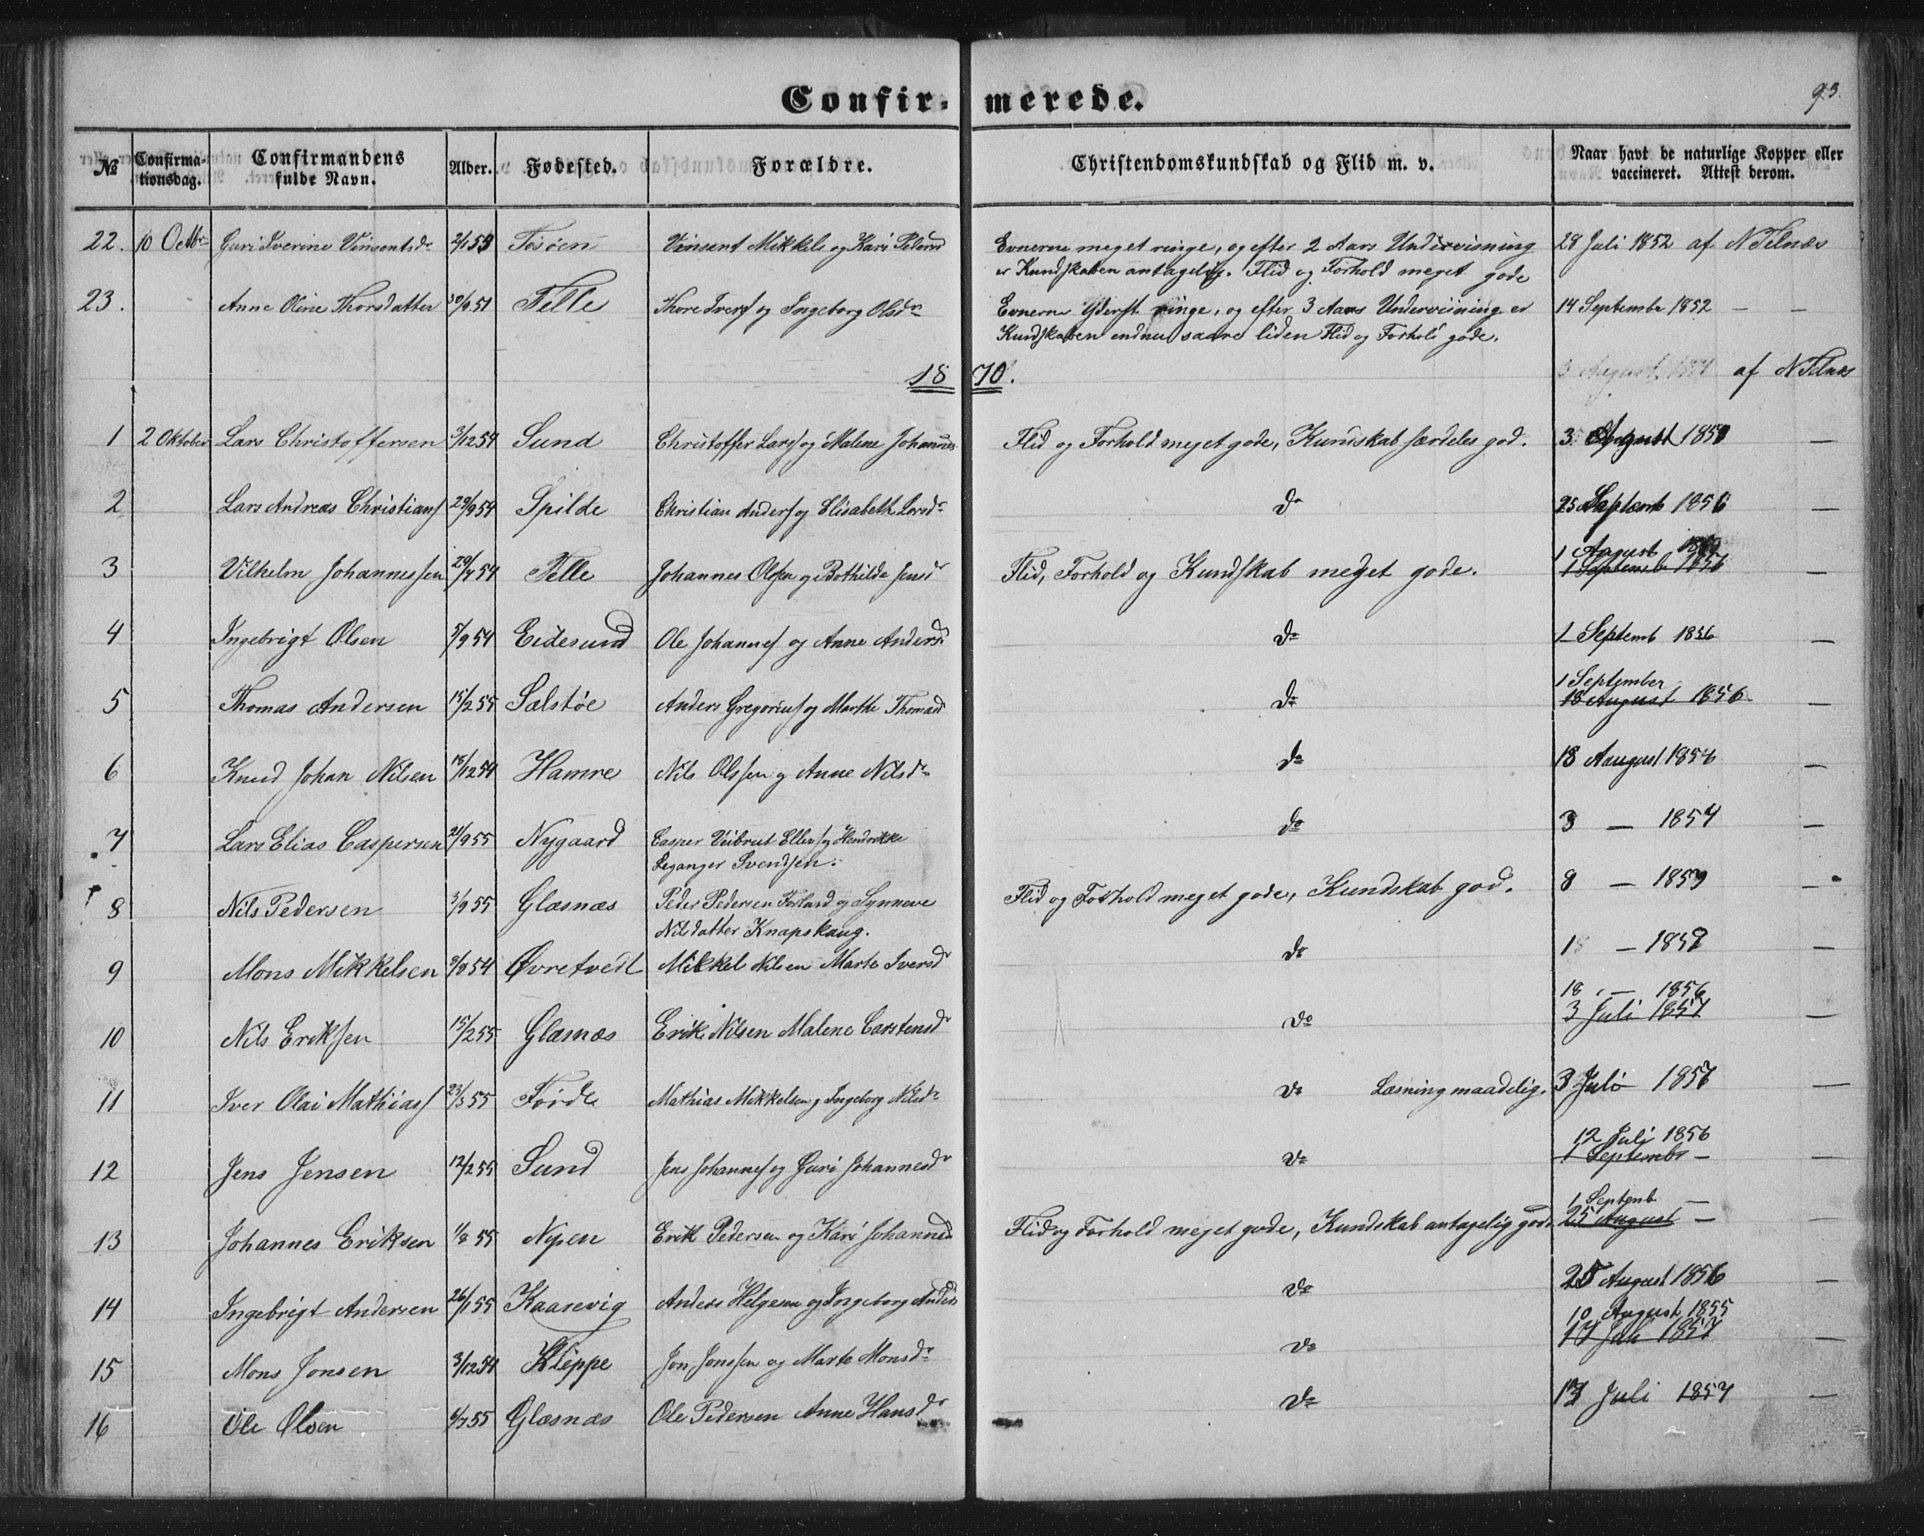 Confir-merede.
93.
№ Confirma-tionsdag. Confirmandens fulde Navn. Alder. Fødested. Forældre. Christendomskundskab og Flid m. v. Naar havt de naturlige Kopper eller vaccineret. Attest derom.
22. 10 Octbr Guri Iverine Vinsentsdr 2/1 53 Tosøen Vinsent Mikkels og Kari Peders Evnerne meget ringe, og efter 2 Aars Underviisning 28 Juli 1852 af N Telnæs
er Kundskaben antagelig. Flid og Forhold meget gode
23. Anne Oline Thorsdatter 30/9 51 Telle Thore Ivers og Ingeborg Olsdr Evnerne yderst ringe, og efter 3 Aars Underviisning er 14 September 1852 — —
Kundskaben endnu saare liden Flid og Forhold gode.
1870.
3 August 1854 af N Telnæs
1 2 Oktober Lars Christoffersen 3/12 54 Sund Christoffer Lars og Malene Johannes Flid og Forhold meget gode, Kundskab særdeles god. 3 August —
2 Lars Andreas Christians 29/9 54 Spilde Christian Anders og Elisabeth Larsdr do 25 Septemb 1856 —
1 August
3 Vilhelm Johannessen 29/7 54 Telle Johannes Olsen og Bothilde Jensd Flid, Forhold og Kundskab meget gode. 1 Septemb 1856
4 Ingebrigt Olsen 5/9 54 Eidesund Ole Johannes og Anne Andersd do 1 Septemb 1856 —
1 September
5 Thomas Andersen 15/2 55 Sælstøe Anders Gregorius og Marthe Thomasd do 18 August 1856 —
6 Knud Johan Nilsen 18/12 54 Hamre Nils Olssen og Anne Nilsdr do 18 Aaugust 1856 —
7 Lars Elias Caspersen 21/9 55 Nygaard Casper Veibrut Ellers og Hendrikke do 3 — 1857 —
Leganger Svendsen.
8 Nils Pedersen 3/9 55 Glæsnæs Peder Pedersen Forland og Synneve Flid og Forhold meget gode, Kundskab god. 8 — 1859 —
Nilsdatter Knapskaug.
9 Mons Mikkelsen 9/9 54 Øvretvedt Mikkel Nilsen Marte Iversd do 18 — 1857 —
18 — 1856
10 Nils Eriksen 15/2 55 Glæsnæs Erik Nilsen Malene Carstensd do 3 Juli 1857 —
11 Iver Olai Mathias 23/3 55 Førde Mathias Mikkelsen og Ingeborg Nilsdr do Læsning maadelig. 3 Juli 1857 —
12 Juli 1856
12 Jens Jensen 12/2 55 Sund Jens Johannes og Guri Johannesd do 1 Septembr — —
1 Septemb —
13 Johannes Eriksen 1/8 55 Nipen Erik Pedersen og Kari Johannesd Flid og Forhold meget gode, Kundskab antagelig god. 25 August — —
14 Ingebrigt Andersen 26/1 55 Kaarevig Anders Helgesen og Ingeborg Anders do 25 August 1856 —
10 August 1855
15 Mons Jonsen 3/12 54 Kleppe Jon Jonssen og Marte Monsdr do 17 Juli 1857 —
16 Ole Olsen 6/7 55 Glæsnæs Ole Pedersen Anne Hansdr do 17 Juli 1857 —